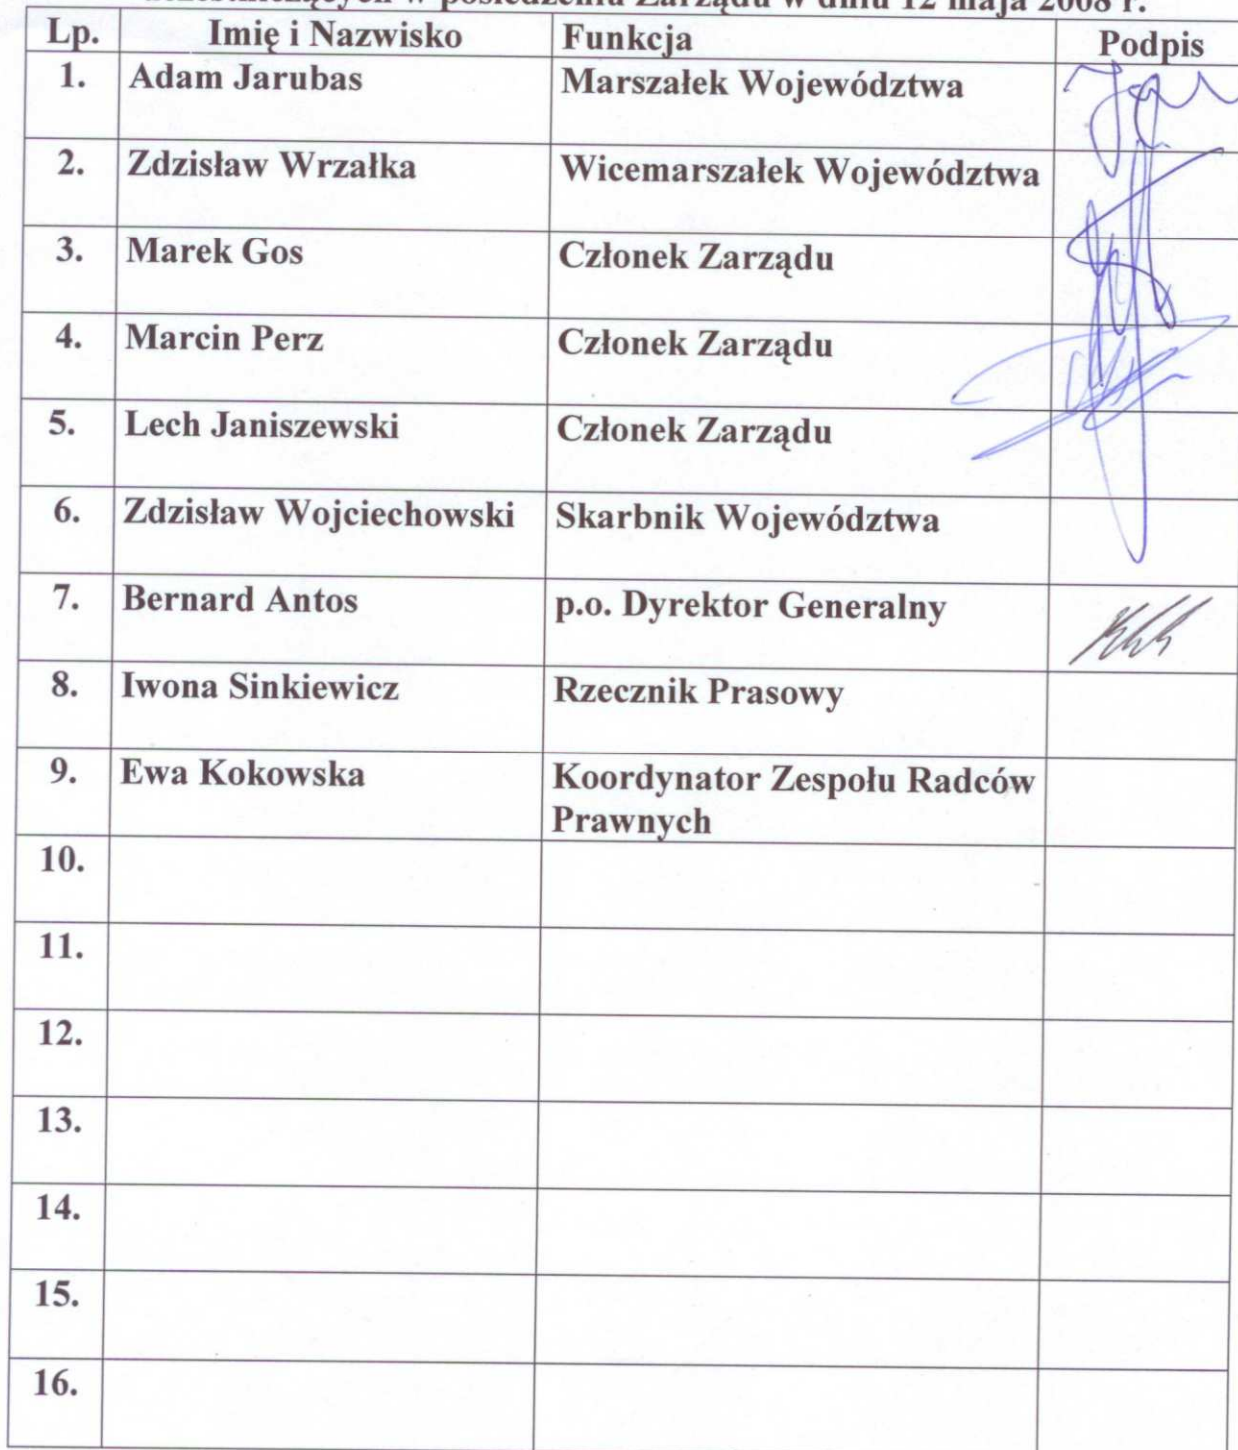 uczestniczących w posiedzeniu Zarządu w dniu 12 maja 2008 r.
Lp. Imię i Nazwisko Funkcja Podpis
1. Adam Jarubas Marszałek Województwa
2. Zdzisław Wrzałka Wicemarszałek Województwa
3. Marek Gos Członek Zarządu
4. Marcin Perz Członek Zarządu
5. Lech Janiszewski Członek Zarządu
6. Zdzisław Wojciechowski Skarbnik Województwa
7. Bernard Antos p.o. Dyrektor Generalny
8. Iwona Sinkiewicz Rzecznik Prasowy
9. Ewa Kokowska Koordynator Zespołu Radców
Prawnych
10.
11.
12.
13.
14.
15.
16.